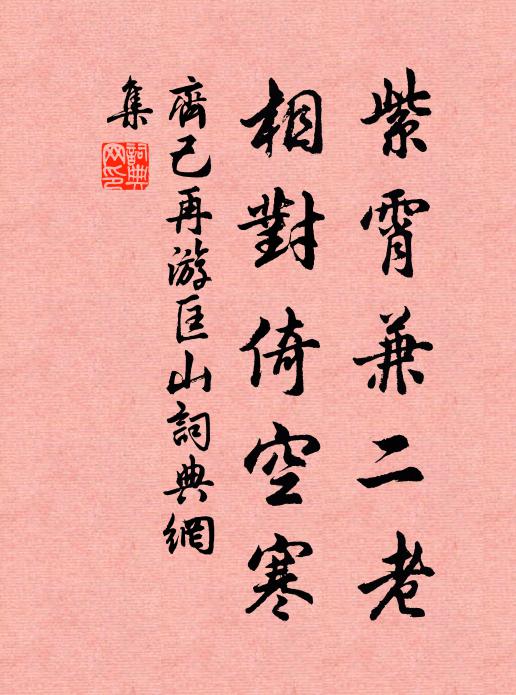 紫霄兼二老
相對倚空寒
齊己再游匡山詞典網
集
詞典網印